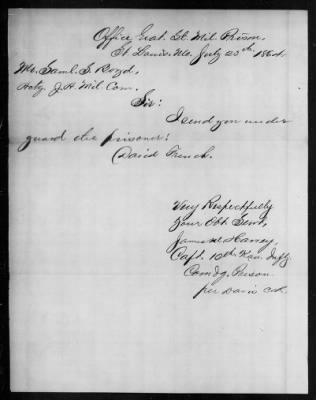 Office Grat. St. Mil. Prison,
St. Louis, Mo. July 23th 1864
Mr. Saml. S. Boyd,
Actg J. A. Mil. Com.
Sir:
I send you under
guard the prisoner:
David French.
Very Respectfully
Your Obt. Servt,
James M. Harvey,
Capt. 10th Kan. Infty
Comdg. Prison
per Davis Clk.